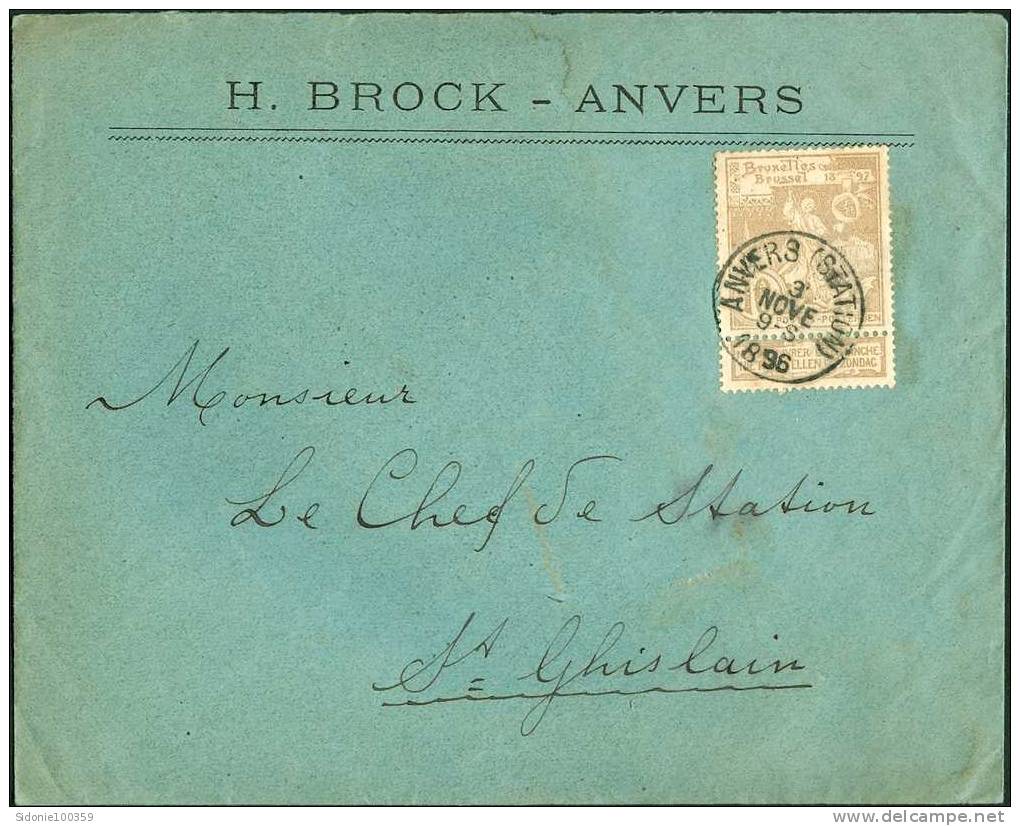 H. BROCK - ANVERS
Bruxelles
Brussel 18 97
ANVERS (STATION)
3
NOVE
9-S
1896
Monsieur
Le Chef de Station
St Ghislain
Sidonie100359
www.delcampe.net